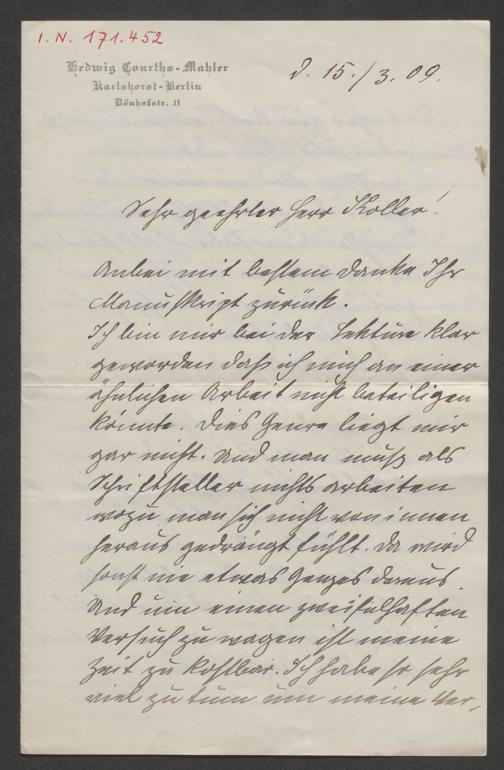 I. N. 171.452
Hedwig Courths-Mahler
Karlshorst-Berlin
Dönhofstr. 11
d. 15./3. 09.
Sehr geehrter Herr Koller!
Anbei mit bestem Danke Ihr
Manuskript zurück.
Ich bin mir bei der Lektüre klar
geworden daß ich mich an einer
ähnlichen Arbeit nicht beteiligen
könnte. Dies Genre liegt mir
gar nicht. Und man muß als
Schriftsteller nichts arbeiten
wozu man sich nicht von innen
heraus gedrängt fühlt. Da wird
sonst nie etwas Ganzes daraus.
Und um einen zweifelhaften
Versuch zu wagen ist meine
Zeit zu kostbar. Ich habe so sehr
viel zu tum um meine Ver-